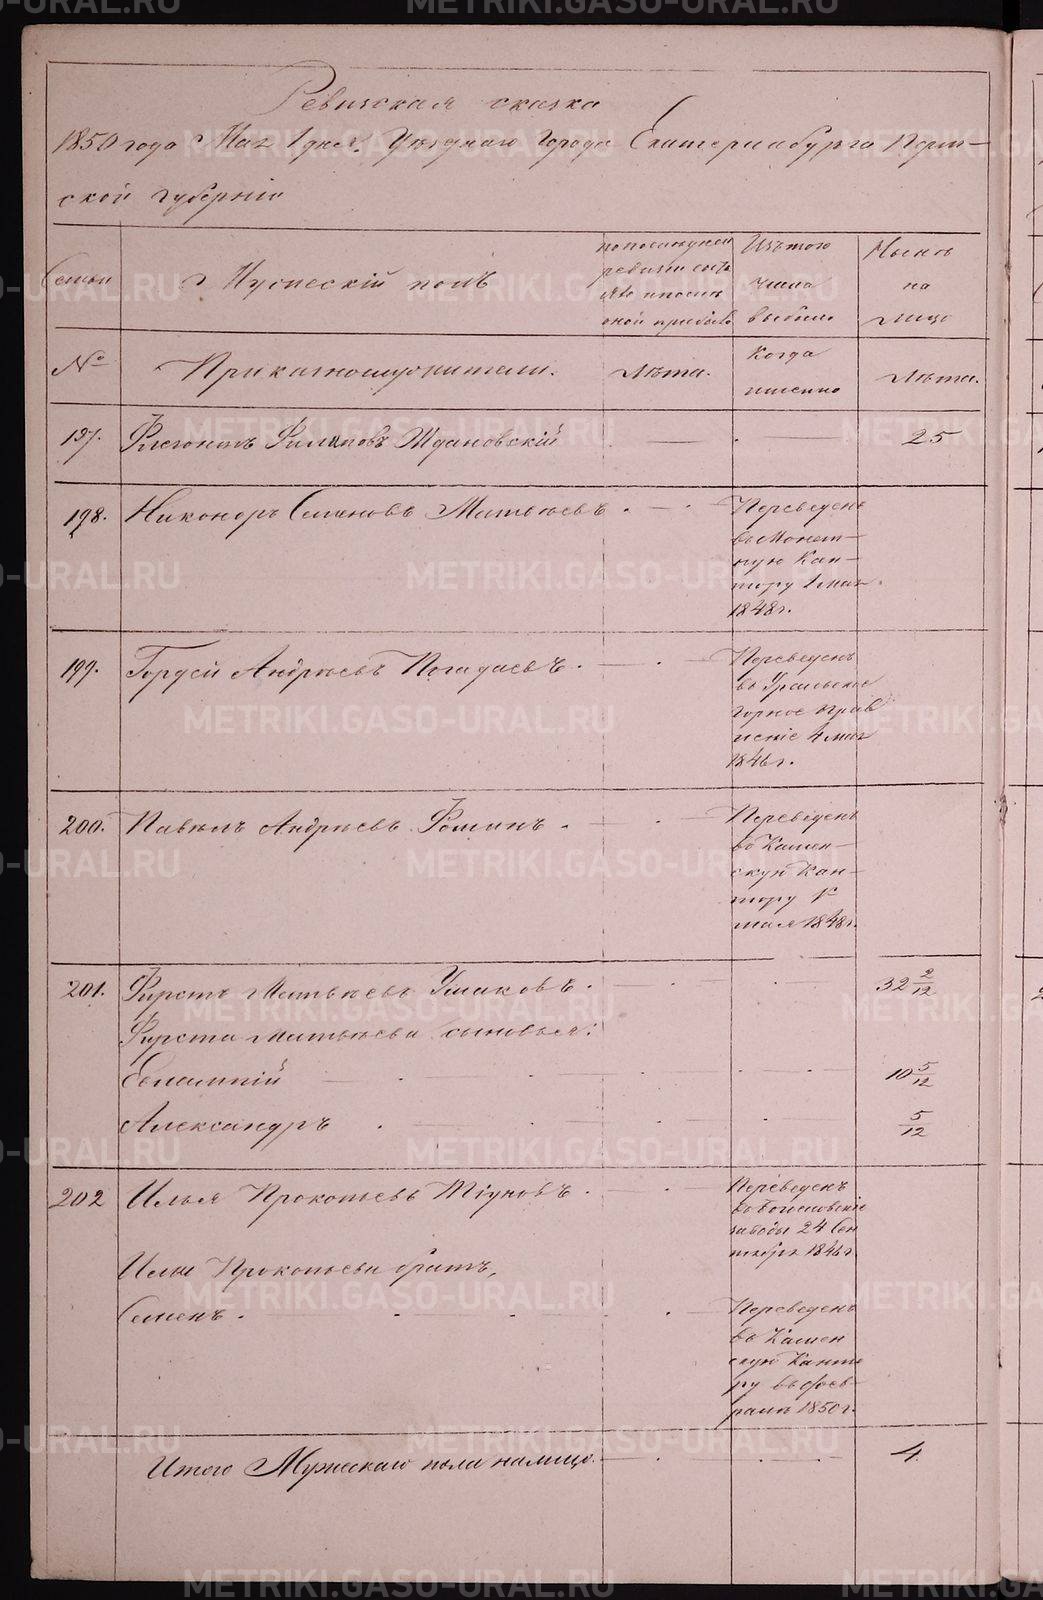 Ревизская сказка
1850 года Мая 1 дня. Уезднаго Города Екатеринбурга Перм-
ской губерніи
Семьи
Мужескій полъ
по последней
ревизіи
Изъ того
числа
выбыло
Ныне
на
лицо
№
Приказнослужители.
Лѣта.
Когда
именно
Лѣта.
197. Флегонтъ Филиповъ Ждановскій 25
198. Никоноръ Семеновъ Матвѣевъ. Переведенъ
въ Монет-
ную Кан-
тору 1 мая
1848 г.
199. Гордей Андреевъ Погадаевъ. Переведенъ
въ Уральское
горное прав
леніе 4 мая
1846 г.
200. Павелъ Андреевъ Фоминъ. Переведенъ
въ Камен-
скую Кан-
тору 1
мая 1848 г.
201. Фирстъ Матвѣевъ Ушаковъ. 32 2/12
Фирста Матвѣева сыновья:
Евлампій 10 5/12
Александръ 5/12
202 Илья Прокопьевъ Тіуновъ. Переведенъ
въ Богословскіе
заводы 24 Сен
тября 1846 г.
Ильи Прокопьева братъ,
Семенъ. Переведенъ
въ Камен
скую Канто
ру въ фев-
ралѣ 1850 г.
Итого Мужескаго пола налицо. 4
METRIKI.GASO-URAL.RU